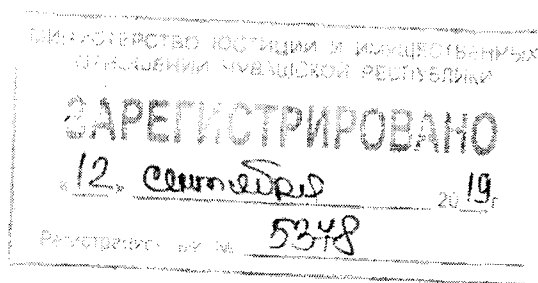 МИНИСТЕРСТВО ЮСТИЦИИ И ИМУЩЕСТВЕННЫХ
ОТНОШЕНИЙ ЧУВАШСКОЙ РЕСПУБЛИКИ
ЗАРЕГИСТРИРОВАНО
«12» сентября 2019 г.
Регистрационный № 5348